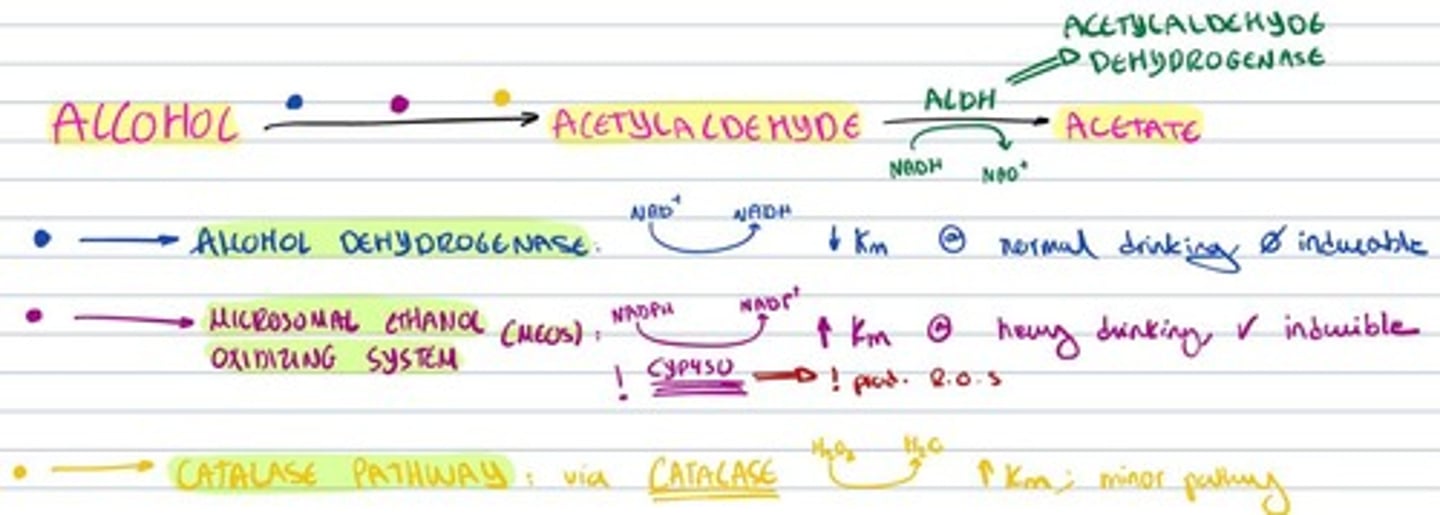 ACETYLALDEHYDE
DEHYDROGENASE
ALDH
ALCOHOL ACETYLALDEHYDE ACETATE
NADH NAD+
NAD+ NADH
ALCOHOL DEHYDROGENASE: ↓ Km @ normal drinking ∅ induceable
NADPH NADP+
MICROSOMAL ETHANOL (MEOS): ↑ Km @ heavy drinking, ✓ inducible
OXIDIZING SYSTEM
! CYP450 ! prod. R.O.S
H2O2 H2O
CATALASE PATHWAY: via CATALASE ↑ Km; minor pathway